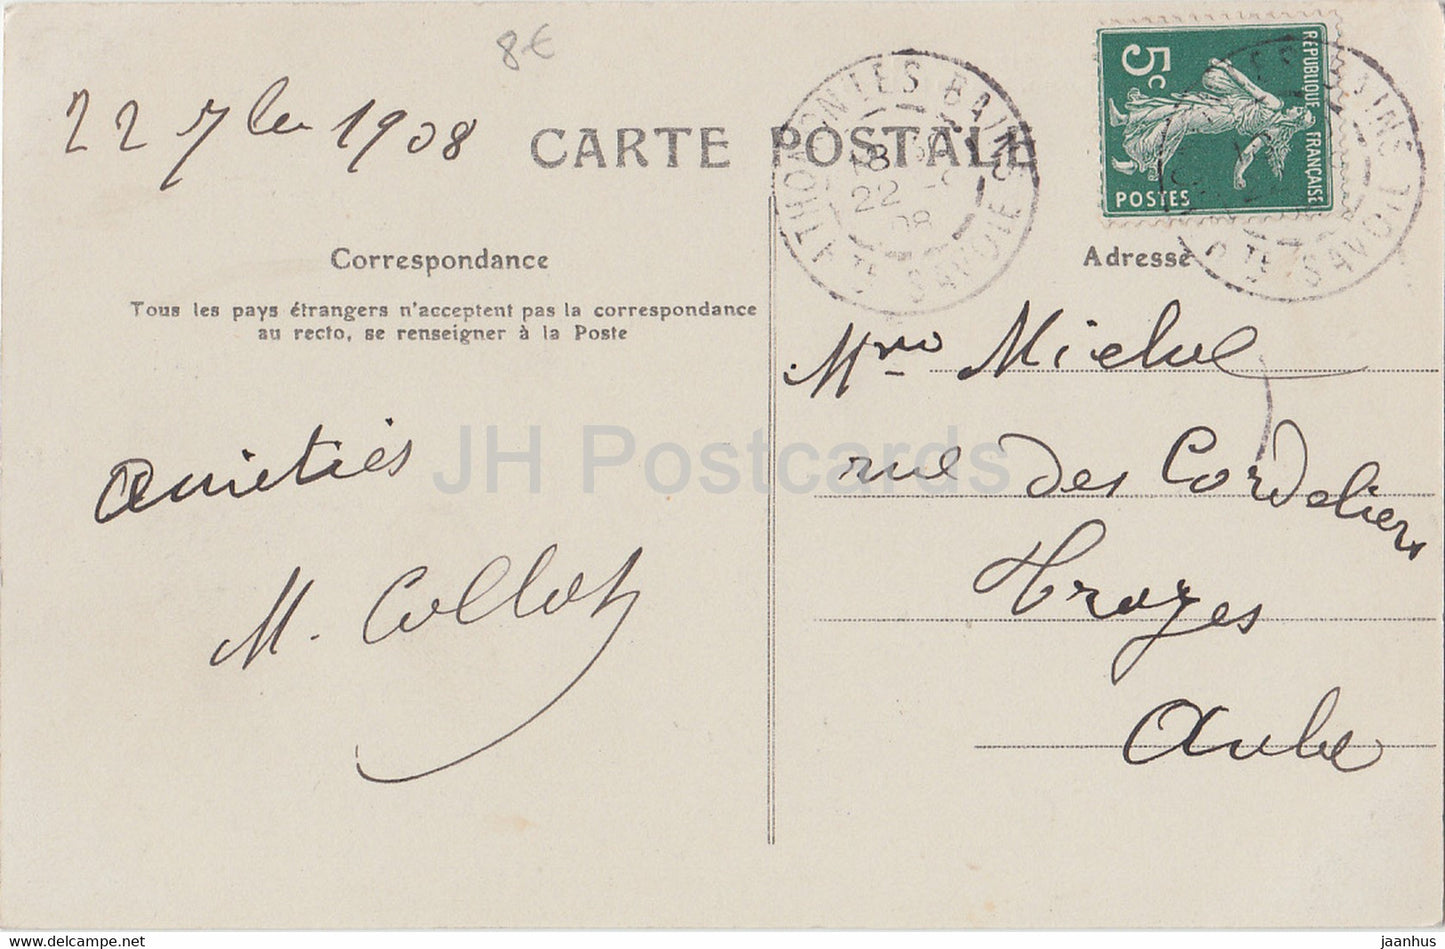 8€
22 7bre 1908
CARTE POSTALE
THONON-LES-BAINS
18 30
22 -9
08
HTE SAVOIE
5c
RÉPUBLIQUE FRANÇAISE
POSTES
Correspondance
Tous les pays étrangers n'acceptent pas la correspondance
au recto, se renseigner à la Poste
Adresse
Amitiés
M. Collot
Mme Michel
rue des Cordeliers
Troyes
Aube
JH Postcards
www.delcampe.net
jaanhus